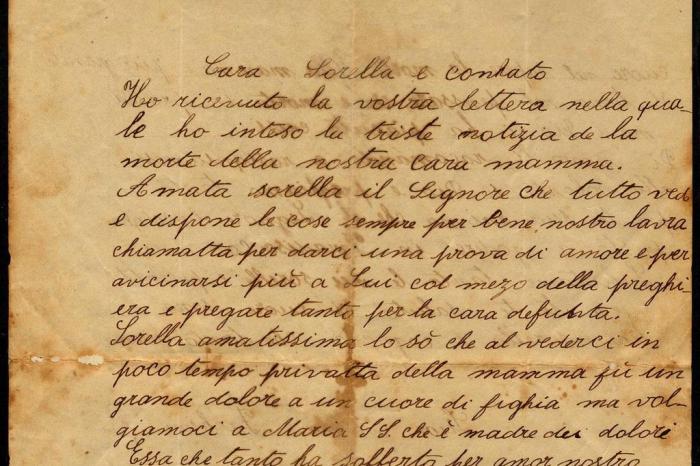 Cara Sorella e conñato
Ho ricenuto la vostra lettera nella qua-
le ho inteso la triste notizia de la
morte della nostra cara mamma.
Amata sorella il Signore che tutto ved
e dispone le cose sempre per bene nostro lavra
chiamatta per darci una prova di amore e per
avicinarsi più a Lui col mezo della preghi-
era e pregare tanto per la cara defunta.
Sorella amatissima lo sò che al vederci in
poco tempo privatta della mamma fù un
grande dolore a un cuore di fighia ma vol-
giamoci a Maria SS. che è madre dei dolori
Essa che tanto ha sofferto per amor nostro